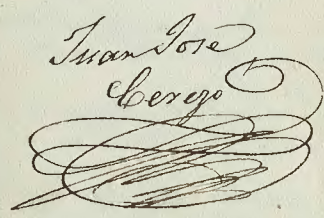 Juan José
Cerezo